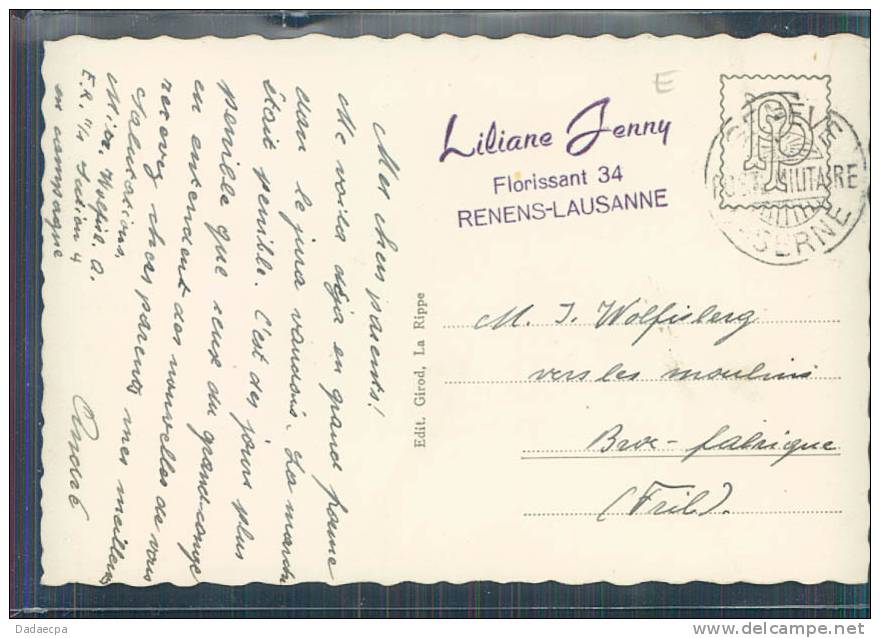 Mes chers parents!
Me voilà déjà en grand forme
dan le jura vaudois. La marche
était penible. C'est des jours plus
penible que ceux du grand-congé
en entendent des nouvelles de vous
recevez chers parents mes meilleurs
Salutations,
André
Wolfisb. A.
E.R. Section 4
en campagne
E
Liliane Jenny
Florissant 34
RENENS-LAUSANNE
P
GENEVE
POSTE MILITAIRE
CASERNE
Edit. Girod, La Rippe
M. J. Wolfisberg
vers les moulins
Broc-fabrique
(Frib.).
Dadaecpa
www.delcampe.net